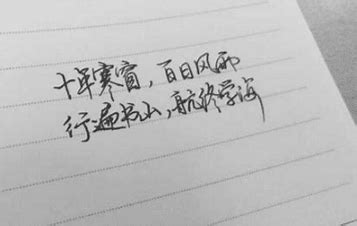 十年寒窗，百日风雨
行遍书山，航终学海